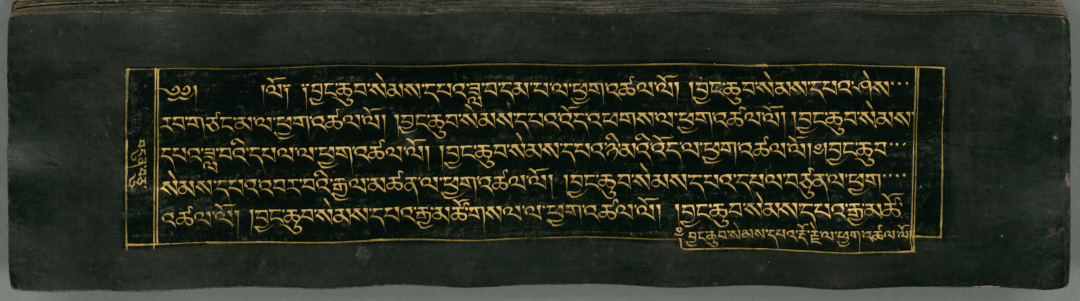 ༄༅། །ལོ༑ ༑བྱང་ཆུབ་སེམས་དཔའ་ཟླ་བ་དམ་པ་ལ་ཕྱག་འཚལ་ལོ། །བྱང་ཆུབ་སེམས་དཔའ་ཤེས་
རབ་གཙང་མ་ལ་ཕྱག་འཚལ་ལོ། །བྱང་ཆུབ་སེམས་དཔའ་འོད་འཕགས་ལ་ཕྱག་འཚལ་ལོ། །བྱང་ཆུབ་སེམས་
དཔའ་ཟླ་བའི་དཔལ་ལ་ཕྱག་འཚལ་ལོ། །བྱང་ཆུབ་སེམས་དཔའ་ཉི་མའི་འོད་ལ་ཕྱག་འཚལ་ལོ།༔བྱང་ཆུབ་
སེམས་དཔའ་འབར་བའི་རྒྱལ་མཚན་ལ་ཕྱག་འཚལ་ལོ། །བྱང་ཆུབ་སེམས་དཔའ་དཔལ་བཙུན་ལ་ཕྱག་
འཚལ་ལོ། །བྱང་ཆུབ་སེམས་དཔའ་རྒྱ་མཚོ་གསལ་ལ་ཕྱག་འཚལ་ལོ། །བྱང་ཆུབ་སེམས་དཔའ་རྒྱ་མཚོ་
བྱང་ཆུབ་སེམས་དཔའ་རྡོ་རྗེ་ལ་ཕྱག་འཚལ་ལོ།